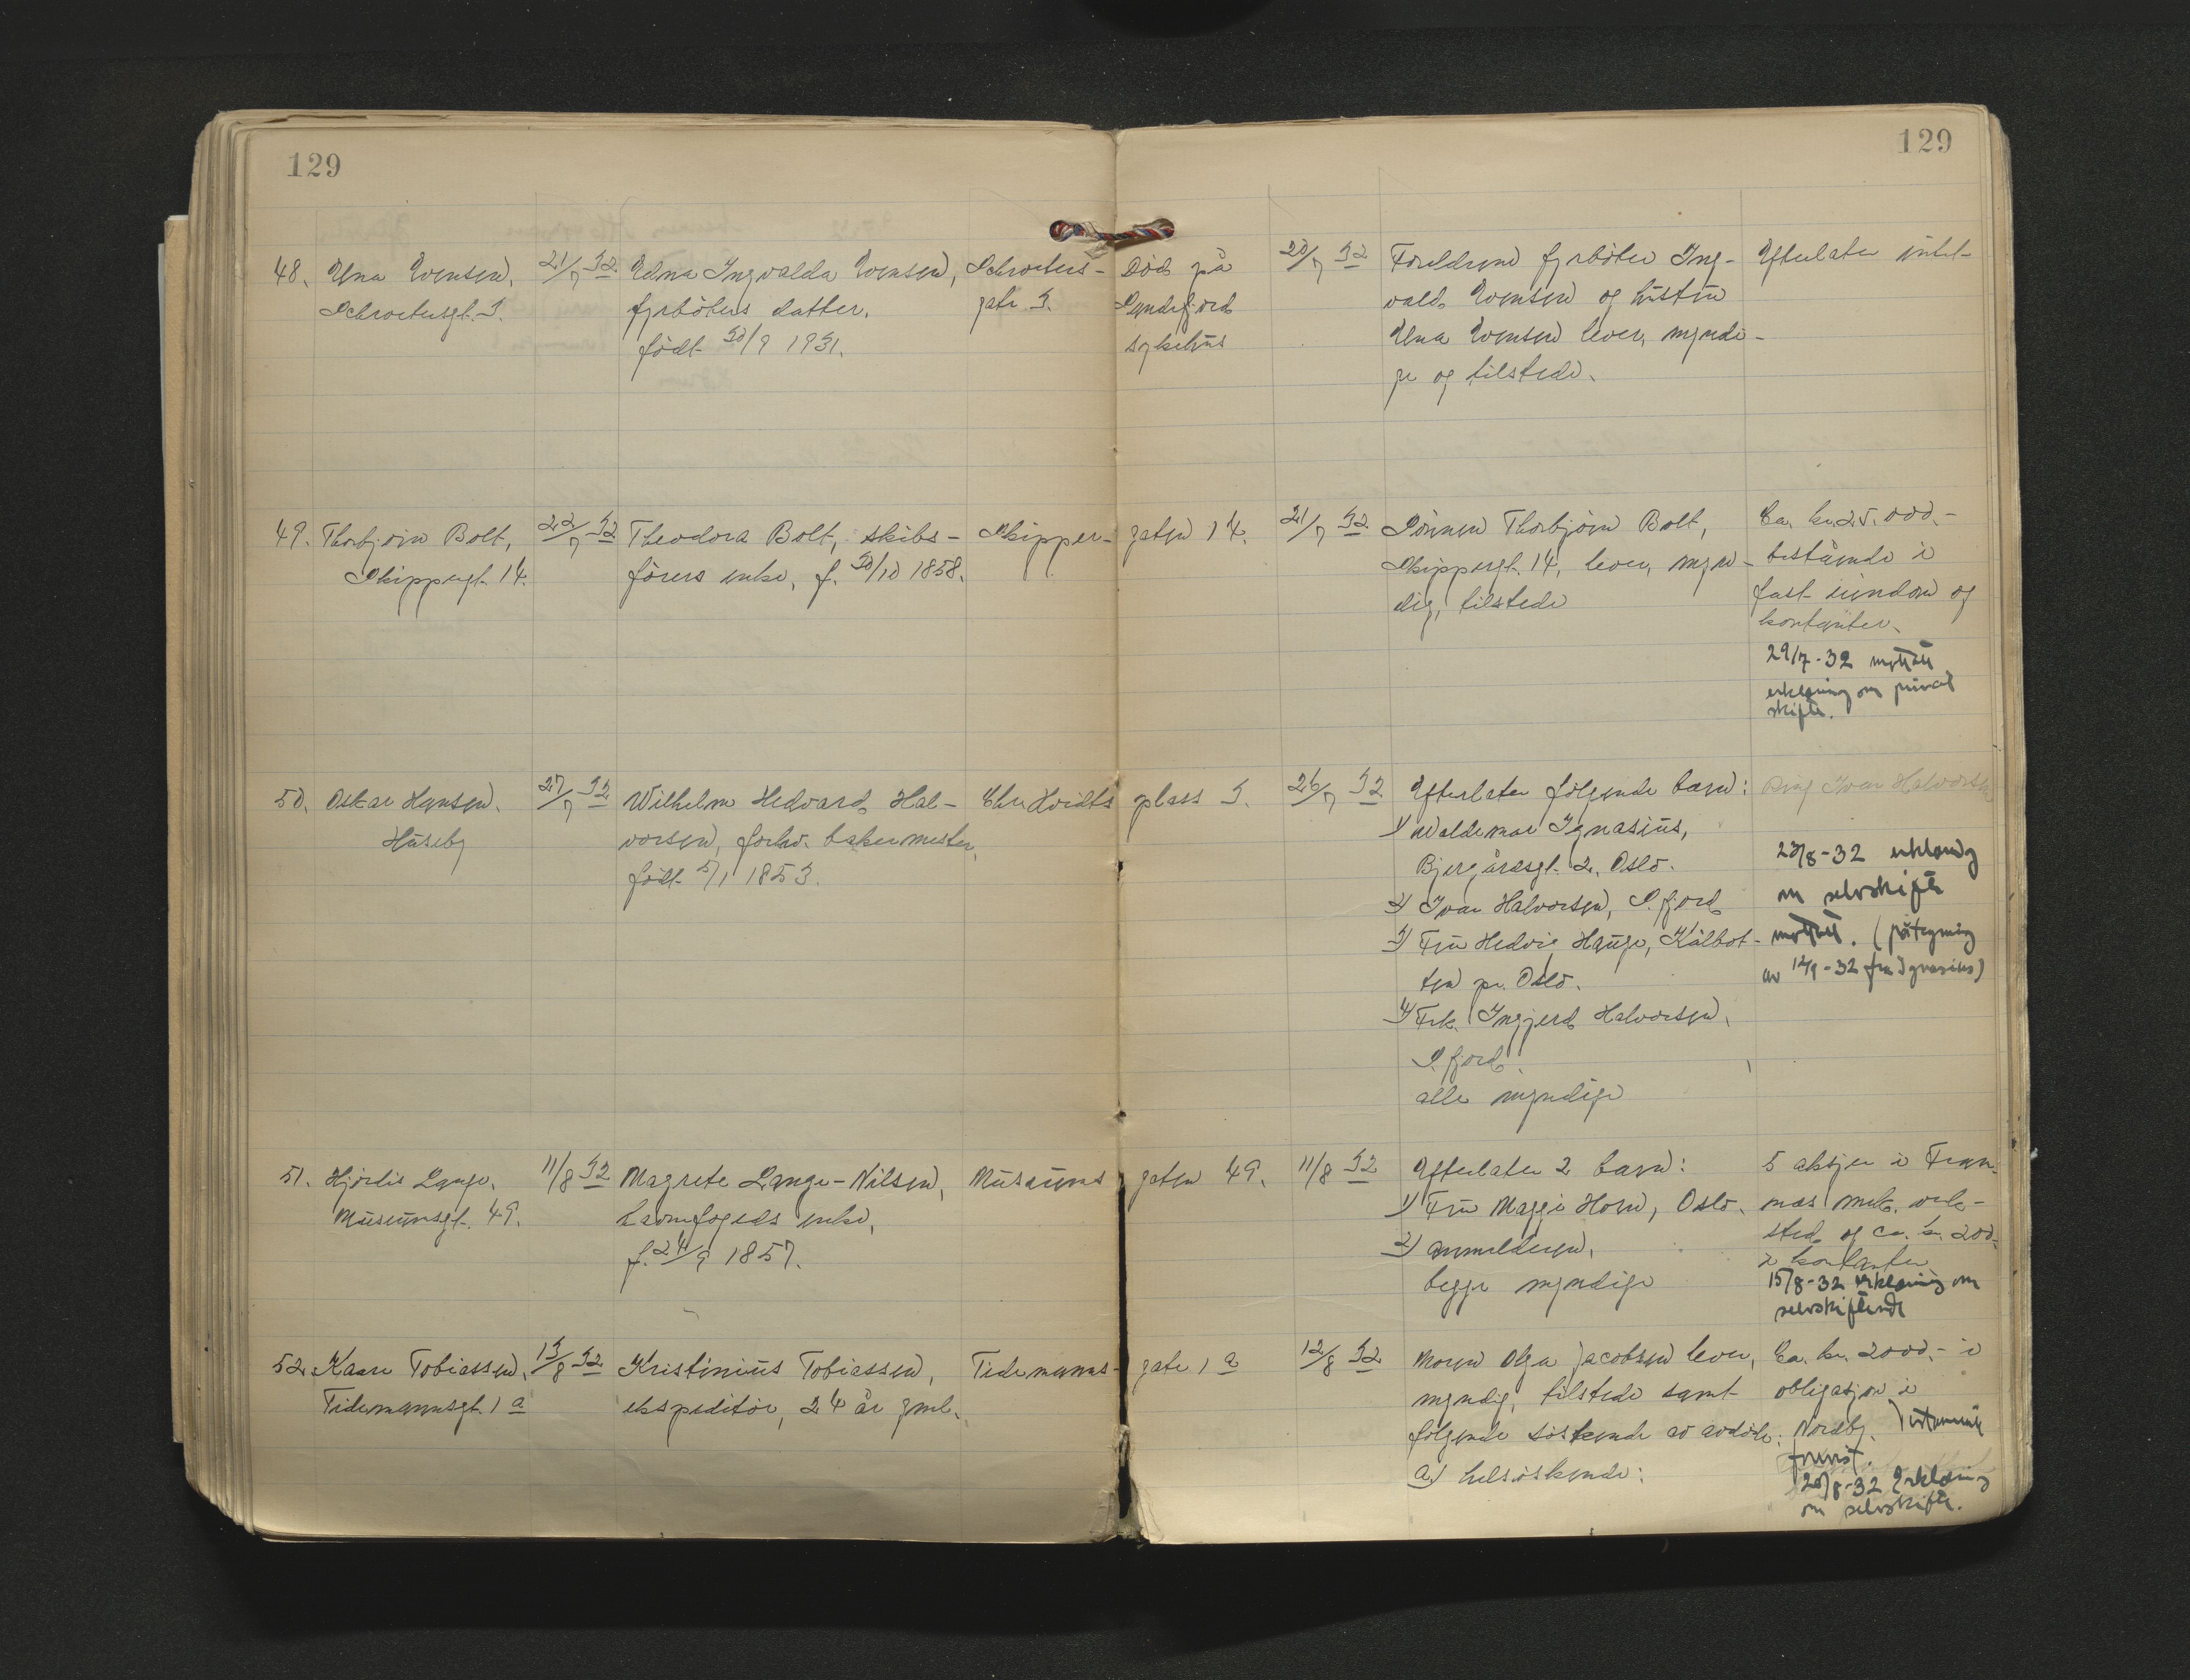 129
129
48. Una Evensen, 21/7 32 Edna Ingvalda Evensen, Schroeters- Død på 20/7 32 Foreldrene fyrbøter Ing- Efterlater intet
Schroetersgt. 3. fyrbøters datter, gate 3. Sandefjord vald Evensen og hustru
født 30/9 1931. sykehus Una Evensen lever, myndi-
ge og tilstede.
49. Thorbjørn Bolt, 22/7 32 Theodora Bolt, skibs- Skipper- gaten 14. 21/7 32 Sønnen Thorbjørn Bolt, Ca. kr. 25.000.-
Skippergt. 14. førers enke, f. 30/10 1858. Skippergt. 14, lever, myn- bestående i
dig, tilstede fast eiendom og
kontanter.
29/7-32 mottatt
erklæring om privat
skifte.
50. Oskar Hansen. 27/7 32 Wilhelm Hedvard Hal- Chr. Hvidts plass 3. 26/7 32 Efterlater følgende barn: Ring Ivar Halvorsen
Huseby vorsen, forhv. bakermester, 1) Waldemar Ignasius,
født 5/1 1853. Bjergårdsgt. 2, Oslo. 23/8-32 erklæring
2) Ivar Halvorsen, S.fjord om selvskifte
3) Fru Hedvig Hauge, Kålbot- mottatt. (påtegning
ten pr. Oslo. av 12/9-32 fra Ignasius)
4) Frk. Ingjerd Halvorsen,
S.fjord.
alle myndige
51. Hjørdis Lange, 11/8 32 Magrete Lange-Nilsen, Museums gaten 49. 11/8 32 Efterlater 2 barn: 5 aksjer i Fram-
Museumsgt. 49. havnefogeds enke, 1) Fru Maggi Horn, Oslo. næs mek. verk-
f. 24/9 1857. 2) anmelderen, sted og ca. kr. 200.-
begge myndige i kontanter
15/8-32 erklæring om
selvskiftende
52. Kaare Tobiassen, 13/8 32 Kristinius Tobiassen, Tidemanns- gate 1 a 12/8 32 Moren Olga Jacobsen lever, Ca. kr. 2000.- i
Tidemannsgt. 1 a ekspeditør, 24 år gml. myndig, tilstede samt obligasjon i
følgende søskende av avdøde: Nordby. Testamente
a) helsøskende:
20/8-32 Erklæring
om selvskifte.